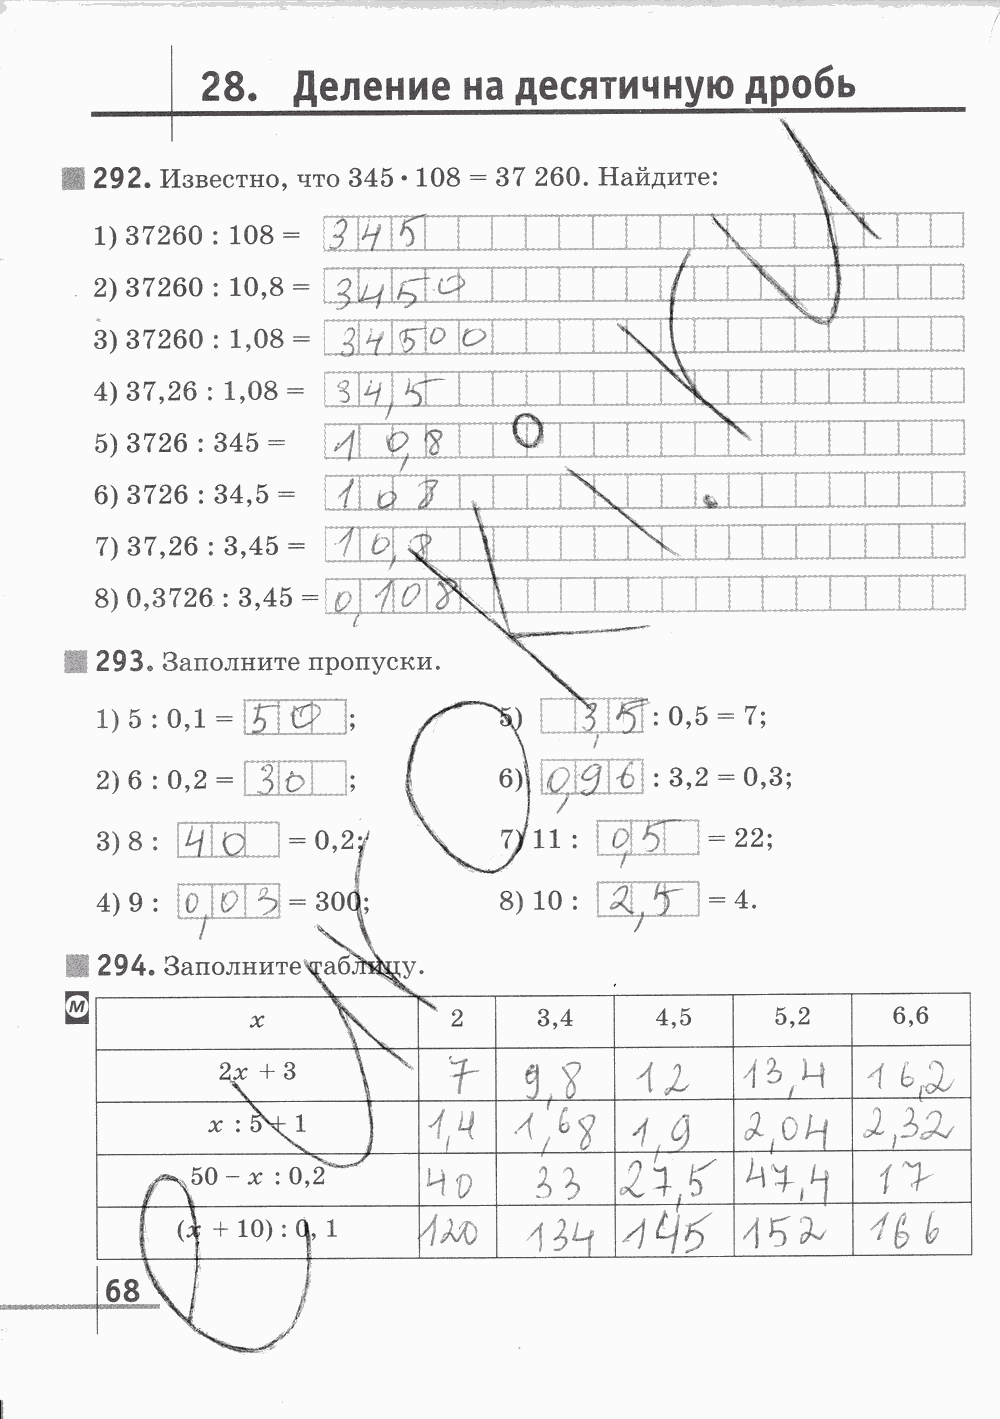 28. Деление на десятичную дробь
292. Известно, что 345 · 108 = 37 260. Найдите:
1) 37260 : 108 = 345
2) 37260 : 10,8 = 3450
3) 37260 : 1,08 = 34500
4) 37,26 : 1,08 = 34,5
5) 3726 : 345 = 10,8
6) 3726 : 34,5 = 108
7) 37,26 : 3,45 = 10,8
8) 0,3726 : 3,45 = 0,108
293. Заполните пропуски.
1) 5 : 0,1 = 50;
5) 3,5 : 0,5 = 7;
2) 6 : 0,2 = 30;
6) 0,96 : 3,2 = 0,3;
3) 8 : 40 = 0,2;
7) 11 : 0,5 = 22;
4) 9 : 0,03 = 300;
8) 10 : 2,5 = 4.
294. Заполните таблицу.
М
x 2 3,4 4,5 5,2 6,6
2x + 3 7 9,8 12 13,4 16,2
x : 5 + 1 1,4 1,68 1,9 2,04 2,32
50 – x : 0,2 40 33 27,5 47,4 17
(x + 10) : 0,1 120 134 145 152 166
68